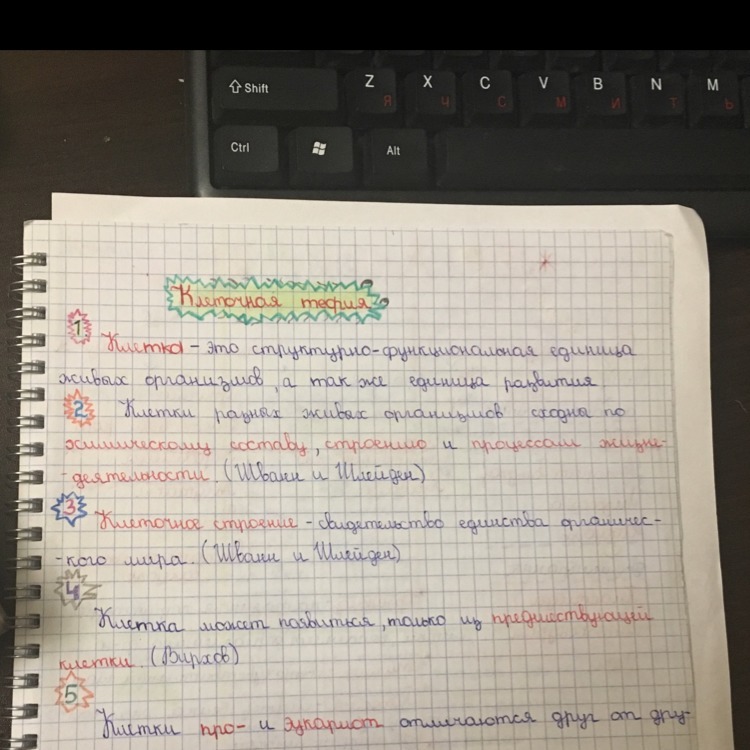 Shift
Z X C V B N M
Я Ч С М И Т Ь
Ctrl Alt
Клеточная теория
1 Клетка - это структурно-функциональная единица
живых организмов, а так же единица развития
2 Клетки разных живых организмов сходна по
химическому составу, строению и процессам жизне-
-деятельности. (Шванн и Шлейден)
3 Клеточное строение - свидетельство единства органичес-
-кого мира. (Шванн и Шлейден)
4
Клетка может появиться, только из предшествующей
клетки. (Вирхов)
5
Клетки про- и эукариот отличаются друг от дру-